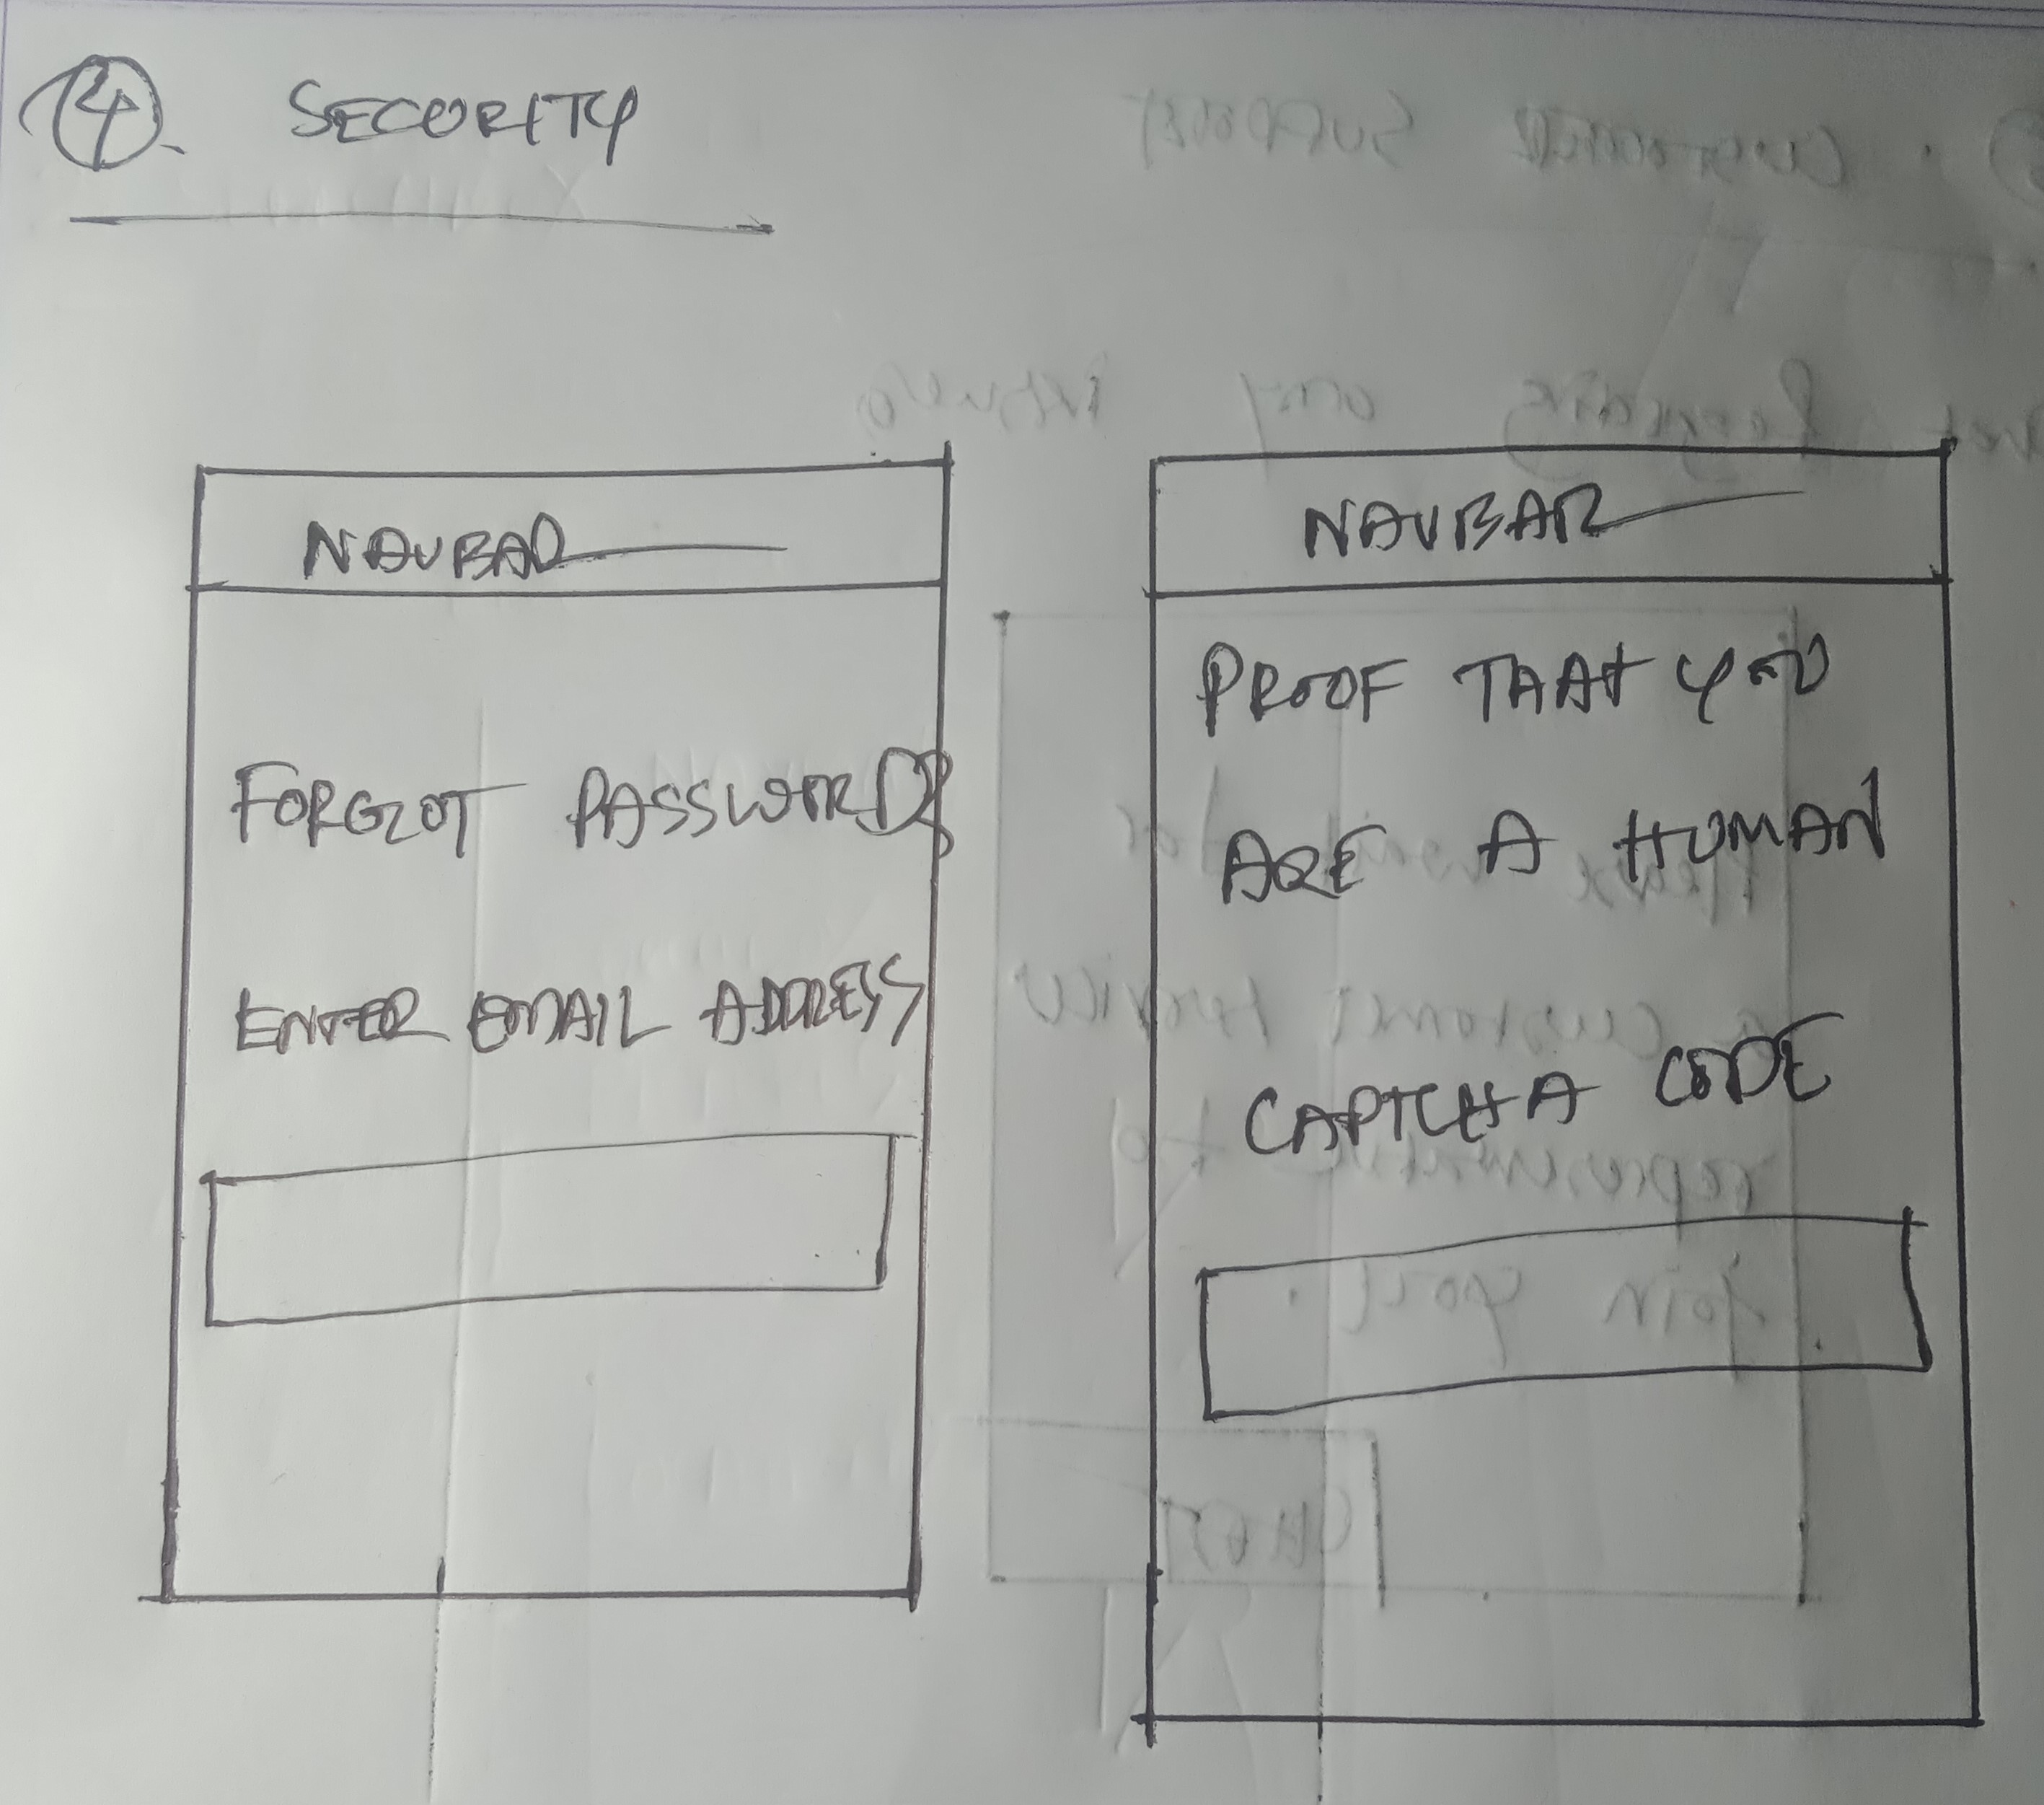 4. SECURITY
NAVBAR
FORGOT PASSWORD?
ENTER EMAIL ADDRESS
NAVBAR
PROOF THAT YOU
ARE A HUMAN
CAPTCHA CODE